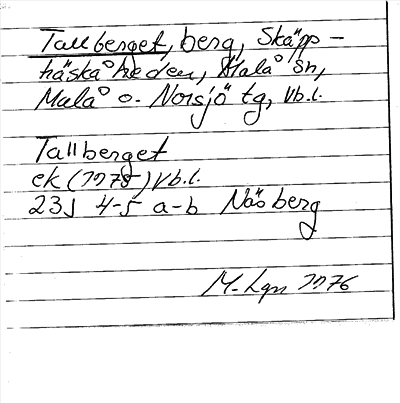 Tallberget, berg, Skäpp-
träskåheden, Malå sn,
Malå o. Norsjö tg, Vb.l.
Tallberget
ek (1978) Vb.l.
23J 4-5 a-b Näsberg
M. Lgn 1976